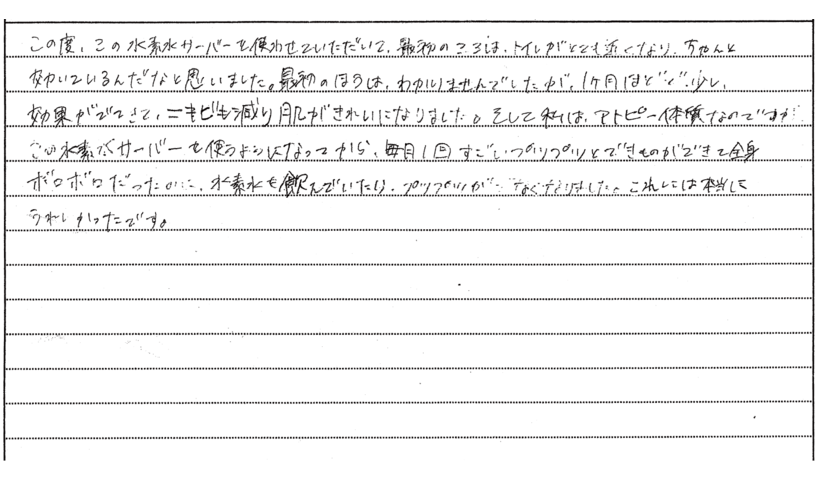 この度、この水素水サーバーを使わせていただいて、最初のころは、トイレがとても近くなり、ちゃんと
効いているんだなと思いました。最初のほうは、わかりませんでしたが、1ヶ月ほどで、少し、
効果がでてきて、ニキビも減り肌がきれいになりました。そして私は、アトピー体質なのですが
この水素水サーバーを使うようになってから、毎月1回すごいプツプツとできものができて全身
ボロボロだったのに、水素水を飲んでいたら、プツプツがでなくなりました。これには本当に
うれしかったです。